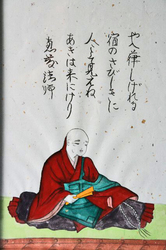 やへ葎しげれる
宿のさびしきに
人こそ見えね
あきは来にけり
恵慶法師